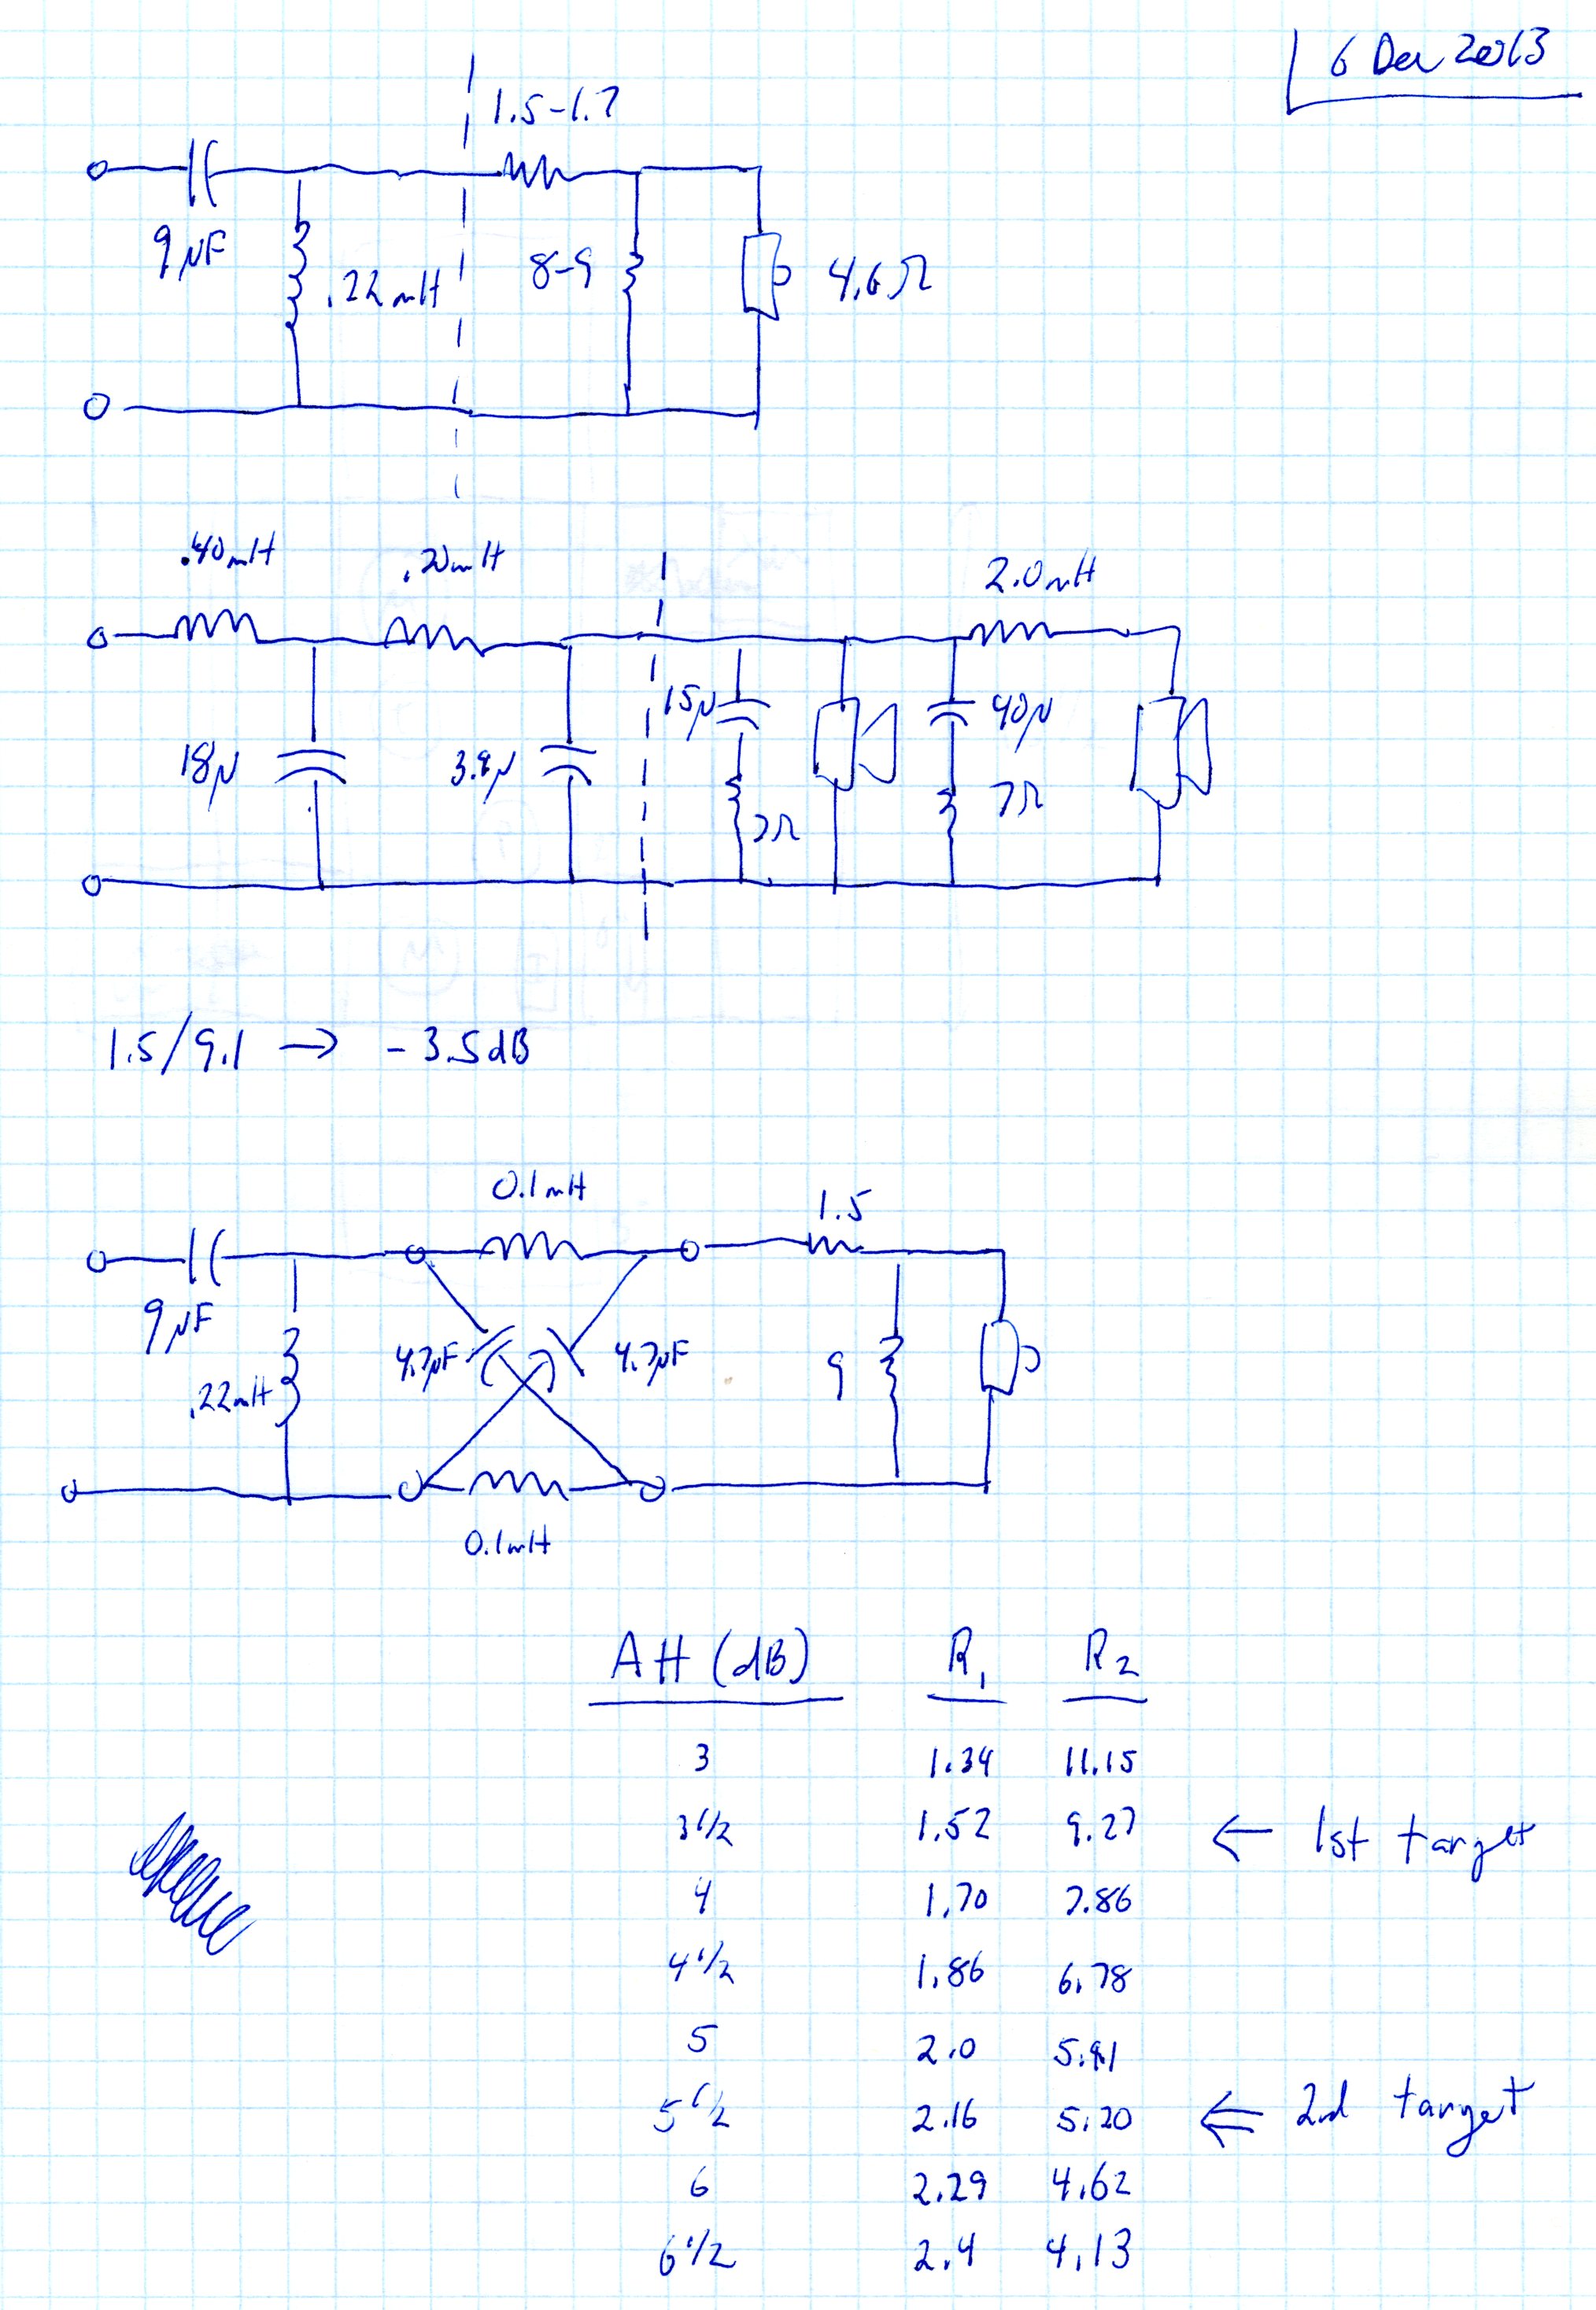 6 Dec 2013
1.5-1.7
9µF
.22mH
8-9
4.6Ω
.40mH
.20mH
2.0mH
18µ
3.9µ
15µ
7Ω
40µ
7Ω
1.5/9.1 → -3.5dB
0.1mH
1.5
9µF
.22mH
4.7µF
4.7µF
9
0.1mH
AH (dB) R₁ R₂
3 1.34 11.15
3 1/2 1.52 9.27 ← 1st target
4 1.70 7.86
4 1/2 1.86 6.78
5 2.0 5.91
5 1/2 2.16 5.20 ⇐ 2nd target
6 2.29 4.62
6 1/2 2.4 4.13